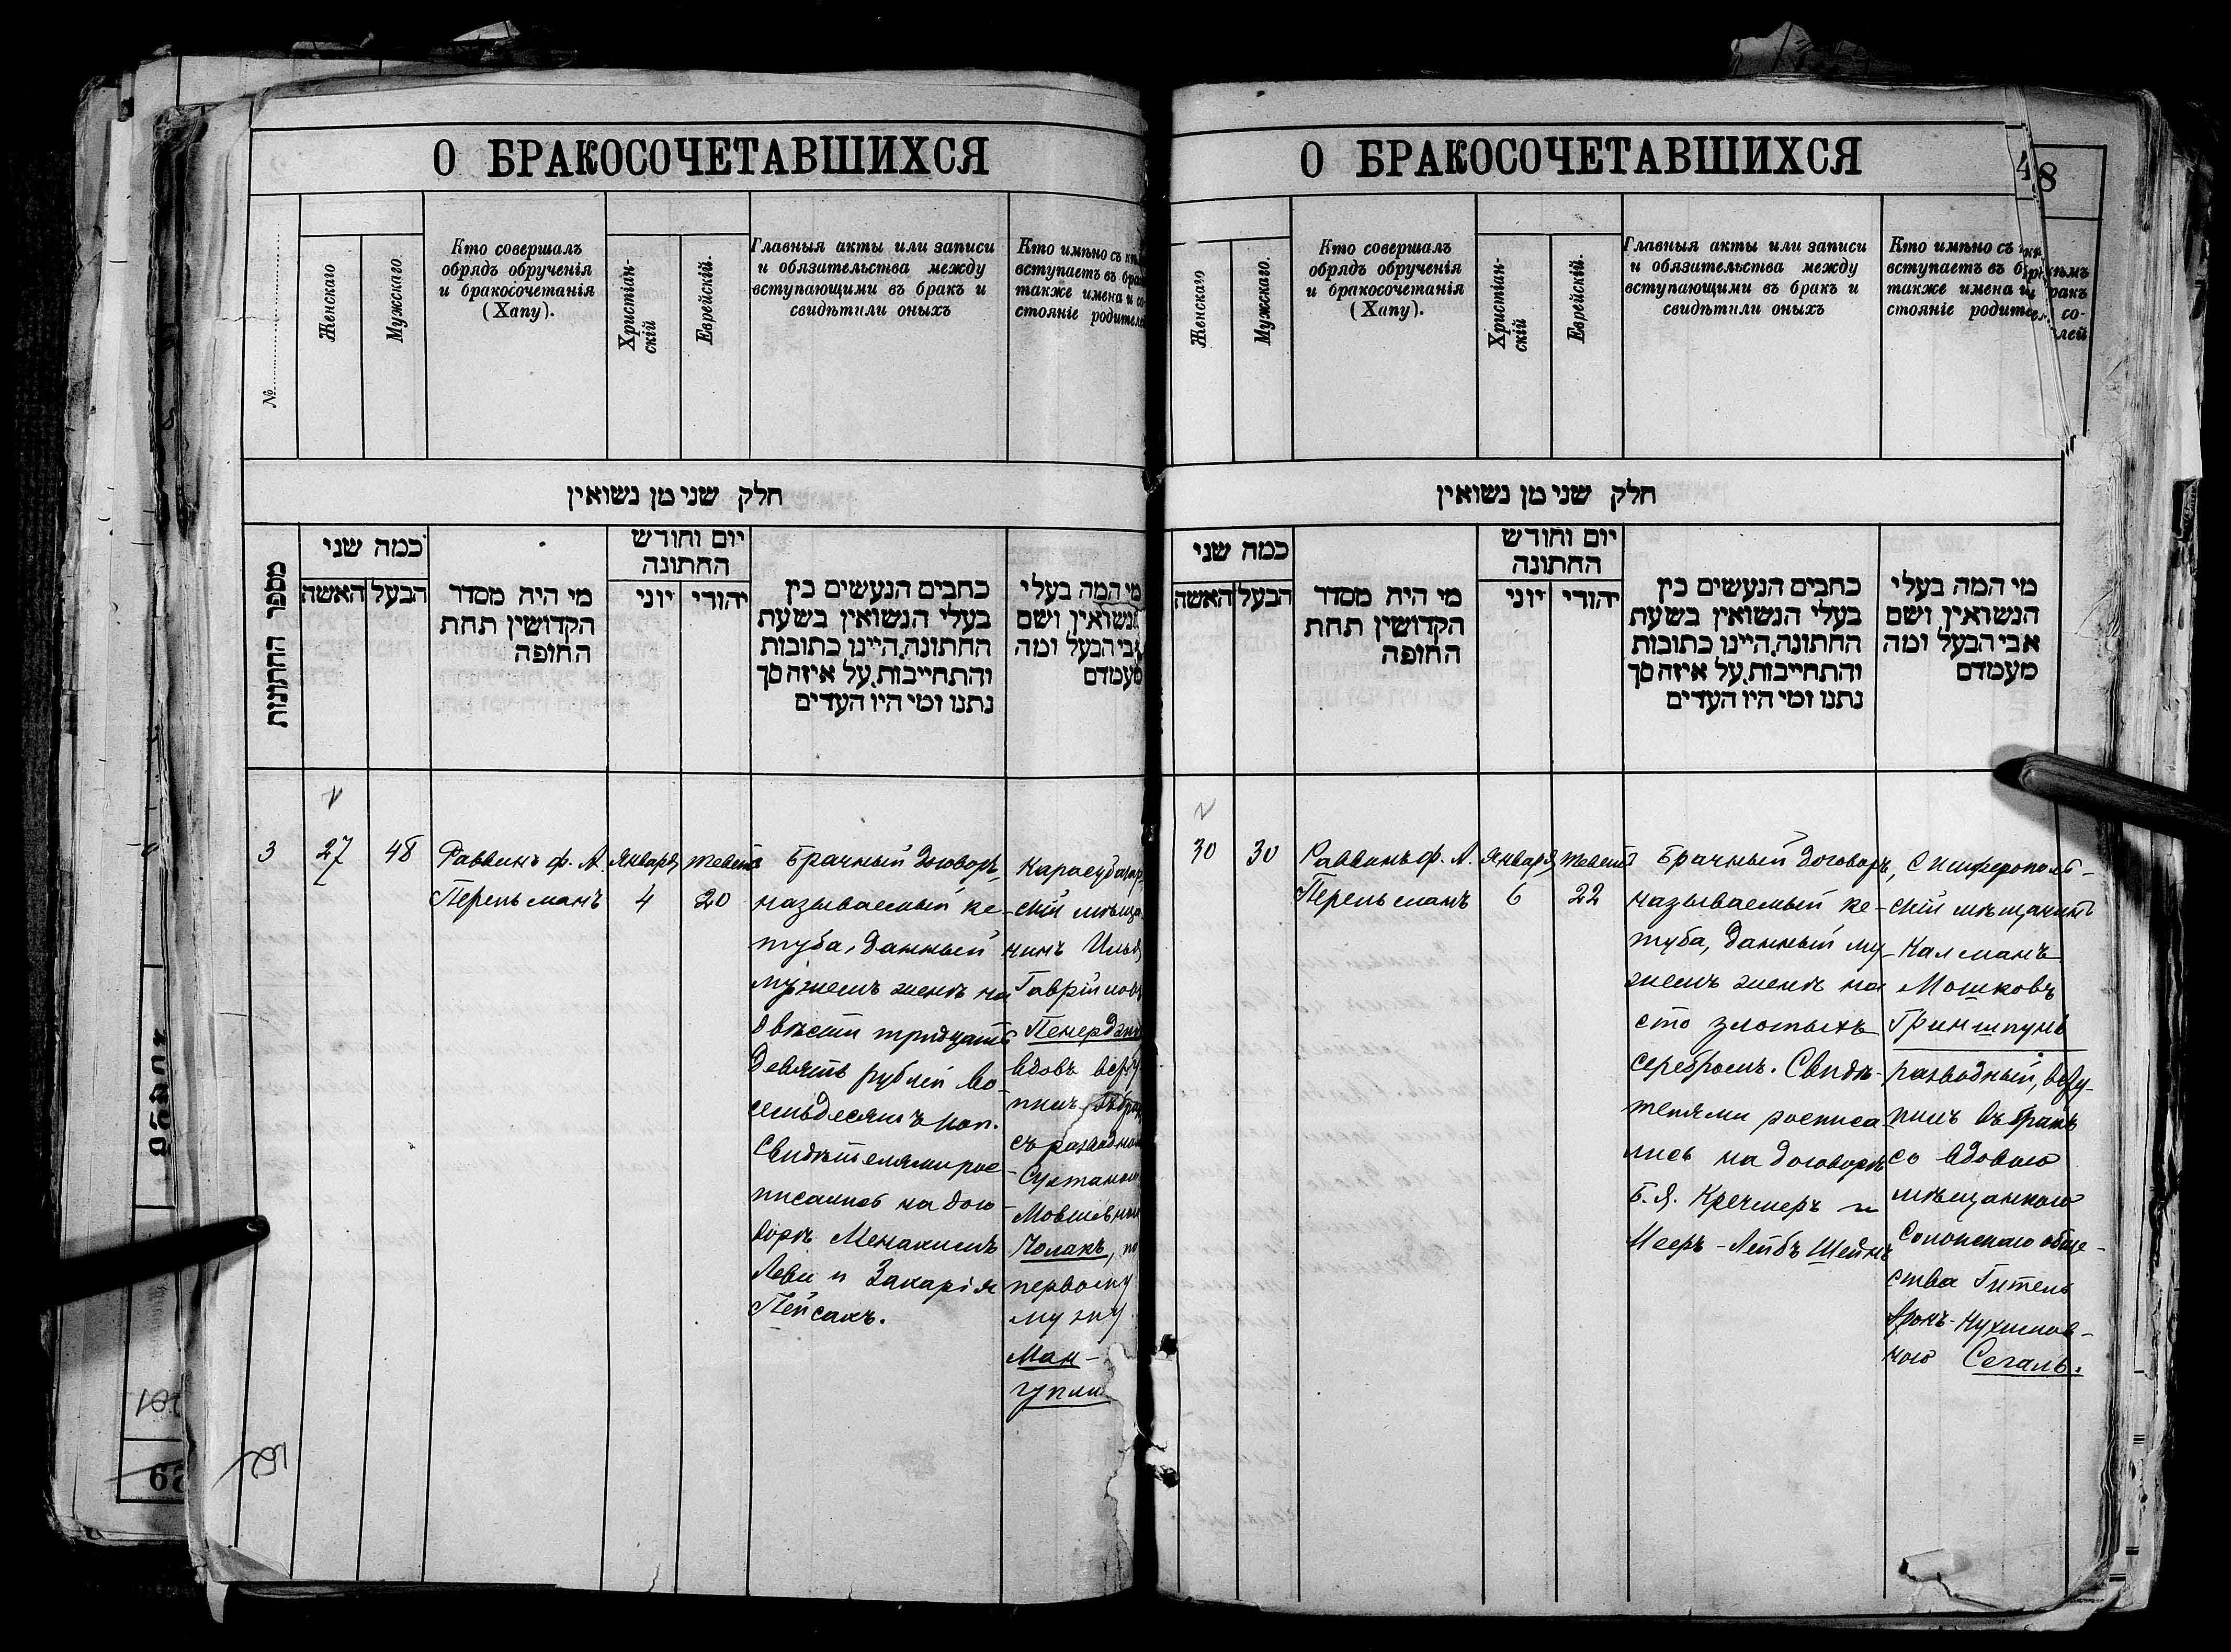 О БРАКОСОЧЕТАВШИХСЯ
№
Женскаго
Мужскаго
Кто совершалъ
обрядъ обрученія
и бракосочетанія
(Хапу).
Христіан-
скій
Еврейскій.
Главныя акты или записи
и обязательства между
вступающими въ бракъ и
свидѣтили оныхъ
Кто имѣно съ
вступаетъ въ
также имена и со-
стояніе родителей
חלק שני מן נשואין
מספר החתונות
כמה שני
האשה
הבעל
מי היה מסדר
הקדושין תחת
החופה
יום וחודש
החתונה
יוני
יהודי
כתבים הנעשים בין
בעלי הנשואין בשעת
החתונה. היינו כתובות
והתחייבות. על איזה סך
נתנו ומי היו העדים
מי המה בעלי
הנשואין ושם
אבי הבעל ומה
מעמדם
3
27
48
Раввинъ ф. А.
Перельманъ
Января
4
Тевета
20
Брачный договоръ,
называемый ке-
туба, данный
мужемъ женѣ на
двѣсти тридцать
девять рублей во-
семьдесятъ коп.
Свидѣтелями рос-
писались на дого-
ворѣ Менахимъ
Леви и Захарія
Пейсахъ.
Карасубазар
скій мѣща
нинъ Илья
вдовъ всту
пилъ въ бра
съ разводной
Султаной
Мовшевной
Чолакъ, по
первому
мужу
Ман-
гупли
О БРАКОСОЧЕТАВШИХСЯ
48
Женскаго
Мужскаго.
Кто совершалъ
обрядъ обрученія
и бракосочетанія
(Хапу).
Христіан-
скій
Еврейскій.
Главныя акты или записи
и обязательства между
вступающими въ бракъ и
свидѣтили оныхъ
Кто имѣно съ кѣмъ
вступаетъ въ бракъ
также имена и со-
стояніе родителей
חלק שני מן נשואין
כמה שני
האשה
הבעל
מי היה מסדר
הקדושין תחת
החופה
יום וחודש
החתונה
יוני
יהודי
כתבים הנעשים בין
בעלי הנשואין בשעת
החתונה. היינו כתובות
והתחייבות. על איזה סך
נתנו ומי היו העדים
מי המה בעלי
הנשואין ושם
אבי הבעל ומה
מעמדם
30
30
Раввинъ ф. А.
Перельманъ
Января
6
Тевета
22
Брачный договоръ,
называемый ке-
туба, данный му-
жемъ женѣ на
сто злотыхъ
серебромъ. Свидѣ-
телями росписа-
лись на договорѣ
Б. Я. Кречмеръ и
Мееръ-Лейбъ Шейнъ
Симферополь-
скій мѣщанинъ
Калманъ
Мошковъ
Гриншпунъ
разводный, всту-
пилъ въ бракъ
со вдовою
мѣщанкою
общe-
ства Гитель
Нухимов-
ною Сегаль.